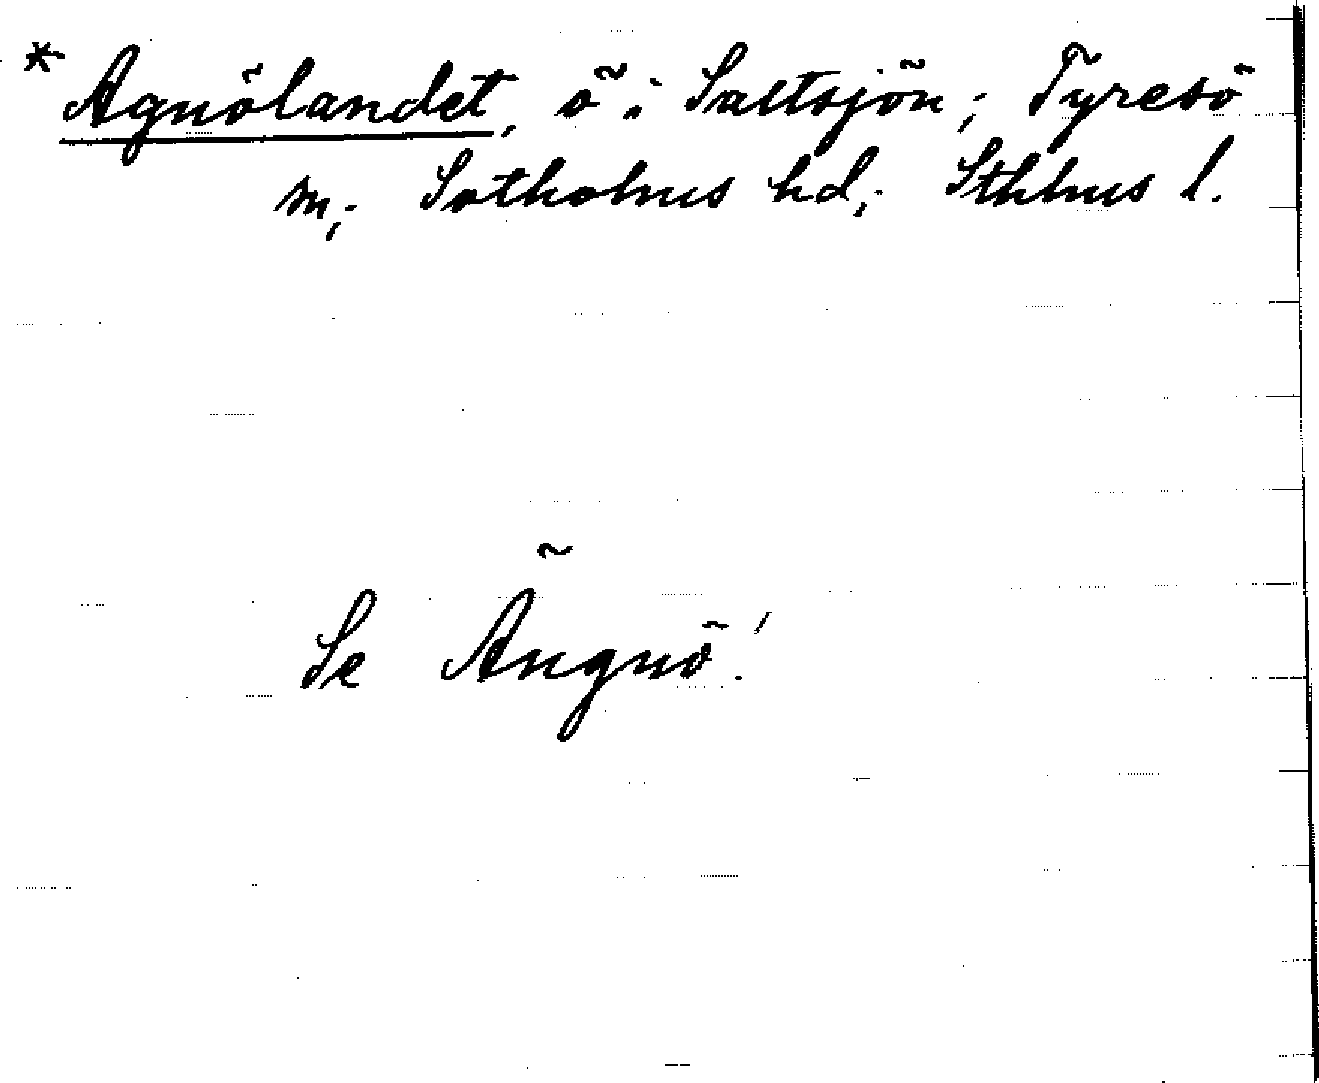 * Agnölandet, ö i Saltsjön; Tyresö
sn; Sotholms hd; Sthlms l.
Se Ängnö!